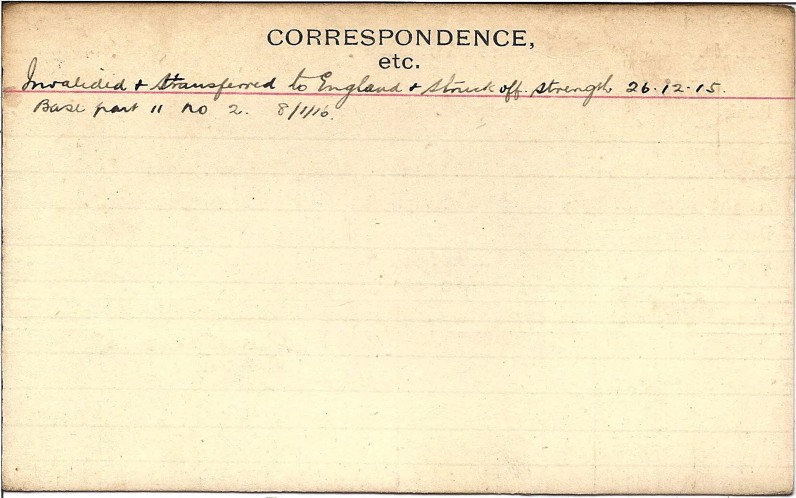 CORRESPONDENCE,
etc.
Invalided & transferred to England & struck off. strength 26.12.15.
Base part 11 no 2. 8/1/16.